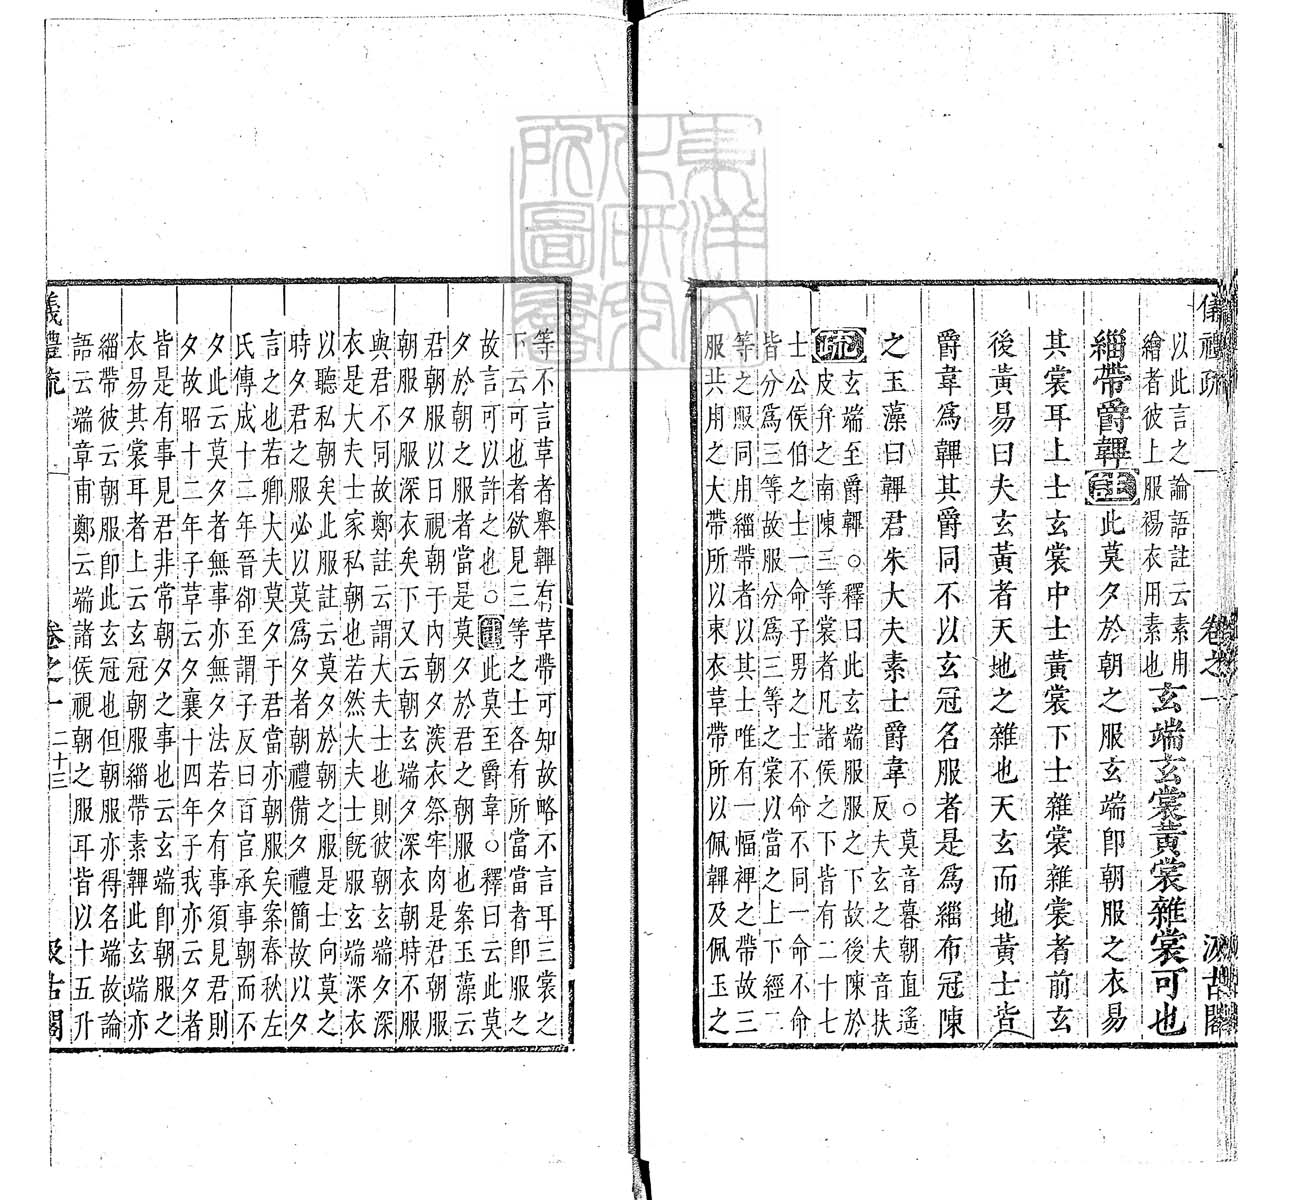 儀禮疏
卷之一
汲古閣
以此言之論語註云素用
繒者彼上服裼衣用素也
玄端玄裳黃裳雜裳可也
緇帶爵韠註此莫夕於朝之服玄端卽朝服之衣易
其裳耳上士玄裳中士黃裳下士雜裳雜裳者前玄
後黃易曰夫玄黃者天地之雜也天玄而地黃士皆
爵韋爲韠其爵同不以玄冠名服者是爲緇布冠陳
之玉藻曰韠君朱大夫素士爵韋
○莫音暮朝直遙
反夫玄之夫音扶
疏
玄端至爵韠○釋曰此玄端服服之下故後陳於
皮弁之南陳三等裳者凡諸侯之下皆有二十七
士公侯伯之士一命子男之士不命不同一命不命
皆分爲三等故服分爲三等之裳以當之上下經二
等之服同用緇帶者以其士唯有一幅裨之帶故三
服共用之大帶所以束衣革帶所以佩韠及佩玉之
等不言革者舉韠有革帶可知故略不言耳三裳之
下云可也者欲見三等之士各有所當當者卽服之
故言可以許之也○註此莫至爵韋○釋曰云此莫
夕於朝之服者當是莫夕於君之朝服也案玉藻云
君朝服以日視朝于內朝夕深衣祭牢肉是君朝服
朝服夕服深衣矣下又云朝玄端夕深衣朝時不服
與君不同故鄭註云謂大夫士也則彼朝玄端夕深
衣是大夫士家私朝也若然大夫士旣服玄端深衣
以聽私朝矣此服註云莫夕於朝之服是士向莫之
時夕君之服必以莫爲夕者朝禮備夕禮簡故以夕
言之也若卿大夫莫夕于君當亦朝服矣案春秋左
氏傳成十二年晉卻至謂子反曰百官承事朝而不
夕此云莫夕者無事亦無夕法若夕有事須見君則
夕故昭十二年子革云夕襄十四年子我亦云夕者
皆是有事見君非常朝夕之事也云玄端卽朝服之
衣易其裳耳者上云玄冠朝服緇帶素韠此玄端亦
緇帶彼云朝服卽此玄冠也但朝服亦得名端故論
語云端章甫鄭云端諸侯視朝之服耳皆以十五升
儀禮疏
卷之一
二十三
汲古閣